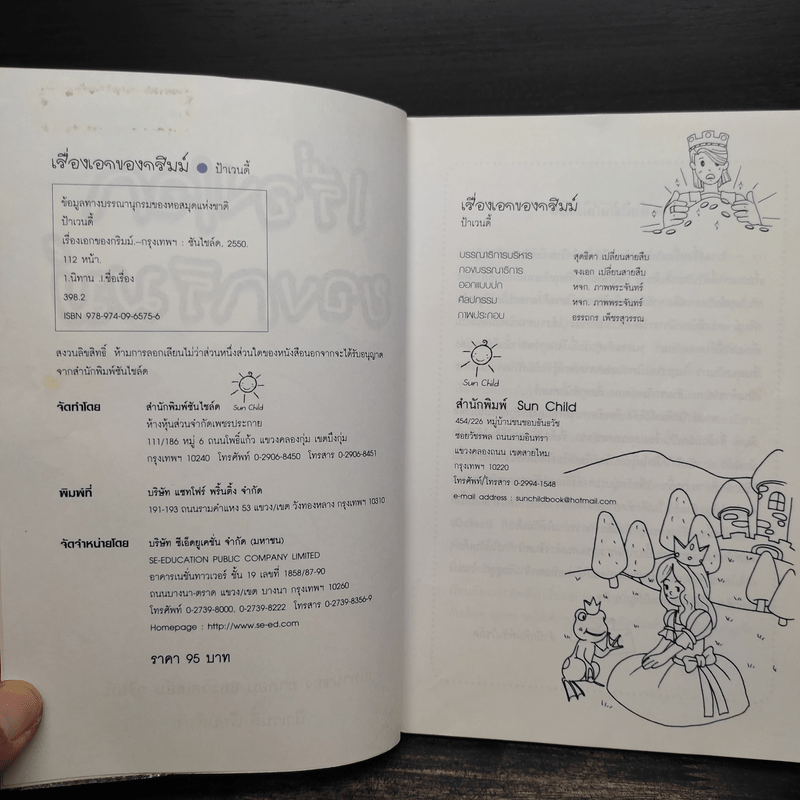 เรื่องเอกของกริมม์ ● ป้าเวนดี้
ข้อมูลทางบรรณานุกรมของหอสมุดแห่งชาติ
ป้าเวนดี้
เรื่องเอกของกริมม์.--กรุงเทพฯ : ซันไชล์ด, 2550.
112 หน้า.
1.นิทาน .I.ชื่อเรื่อง
398.2
ISBN 978-974-09-6575-6
สงวนลิขสิทธิ์ ห้ามการลอกเลียนไม่ว่าส่วนหนึ่งส่วนใดของหนังสือนอกจากจะได้รับอนุญาต
จากสำนักพิมพ์ซันไชล์ด
Sun Child
จัดทำโดย สำนักพิมพ์ซันไชล์ด
ห้างหุ้นส่วนจำกัดเพชรประกาย
111/186 หมู่ 6 ถนนโพธิ์แก้ว แขวงคลองกุ่ม เขตบึงกุ่ม
กรุงเทพฯ 10240 โทรศัพท์ 0-2906-8450 โทรสาร 0-2906-8451
พิมพ์ที่ บริษัท แซทโฟร์ พริ้นติ้ง จำกัด
191-193 ถนนรามคำแหง 53 แขวง/เขต วังทองหลาง กรุงเทพฯ 10310
จัดจำหน่ายโดย บริษัท ซีเอ็ดยูเคชั่น จำกัด (มหาชน)
SE-EDUCATION PUBLIC COMPANY LIMITED
อาคารเนชั่นทาวเวอร์ ชั้น 19 เลขที่ 1858/87-90
ถนนบางนา-ตราด แขวง/เขต บางนา กรุงเทพฯ 10260
โทรศัพท์ 0-2739-8000, 0-2739-8222 โทรสาร 0-2739-8356-9
Homepage : http://www.se-ed.com
ราคา 95 บาท
เรื่องเอกของกริมม์
ป้าเวนดี้
บรรณาธิการบริหาร สุดธิดา เปลี่ยนสายสืบ
กองบรรณาธิการ จงเอก เปลี่ยนสายสืบ
ออกแบบปก หจก. ภาพพระจันทร์
ศิลปกรรม หจก. ภาพพระจันทร์
ภาพประกอบ อรรถกร เพ็ชรสุวรรณ
Sun Child
สำนักพิมพ์ Sun Child
454/226 หมู่บ้านชนชอบธันธวัช
ซอยวัชรพล ถนนรามอินทรา
แขวงคลองถนน เขตสายไหม
กรุงเทพฯ 10220
โทรศัพท์/โทรสาร 0-2994-1548
e-mail address : sunchildbook@hotmail.com